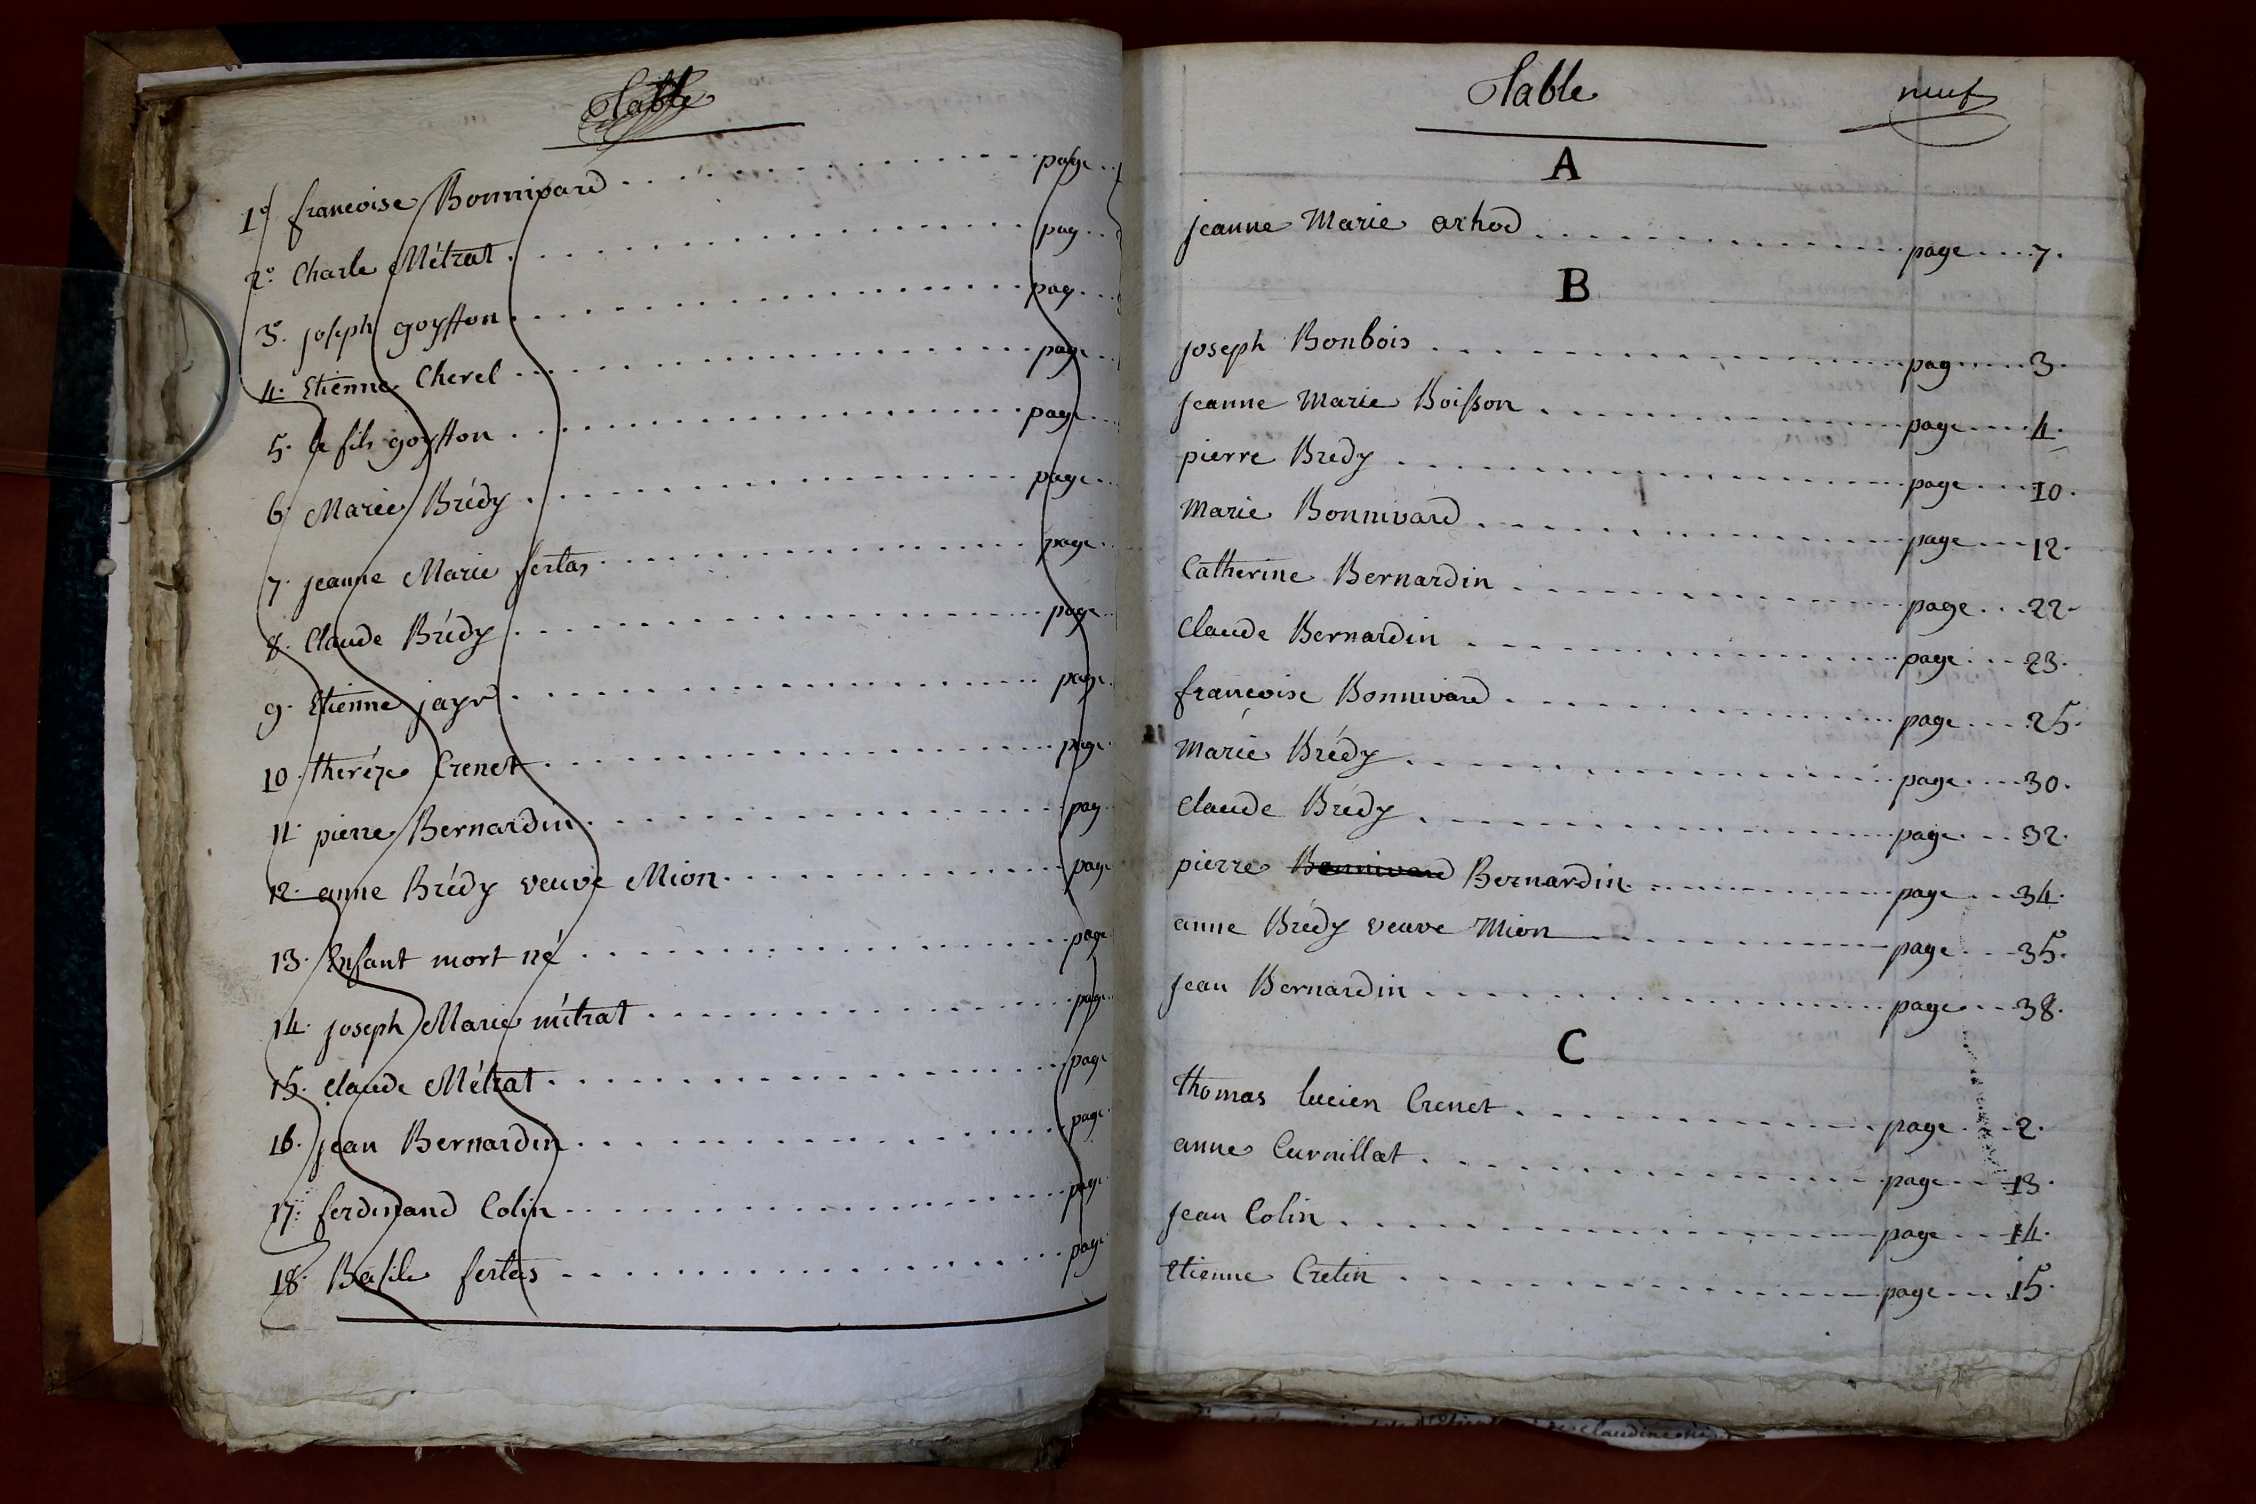 Table
1º francoise Bonnivard page
2º Charle Métrat pag
3º joseph goyffon pag
4. Etienne Cherel page
5. le fils goyffon page
6. Marie Brédy page
7. jeanne Marie fertas page
8. Claude Brédy page
9. Etienne jayr page
10. therèze Crenet page
11. pierre Bernardin pag
12. anne Brédy veuve Mion page
13. Enfant mort né page
14. joseph Marie métrat page
15. claude Métrat page
16. jean Bernardin page
17. ferdinand Colin page
18. Basile fertas page
Table neuf
A
jeanne Marie arhod page 7.
B
joseph Bonbois pag 3.
jeanne Marie Boisson page 4.
pierre Bredy page 10.
Marie Bonnivard page 12.
Catherine Bernardin page 22.
Claude Bernardin page 23.
francoise Bonnivard page 25.
Marie Brédy page 30.
Claude Brédy page 32.
pierre Bonnivard Bernardin page 34.
anne Brédy veuve Mion page 35.
jean Bernardin page 38.
C
thomas lucien Crenet page 2.
anne Curnillat page 13.
jean Colin page 14.
Etienne Cretin page 15.